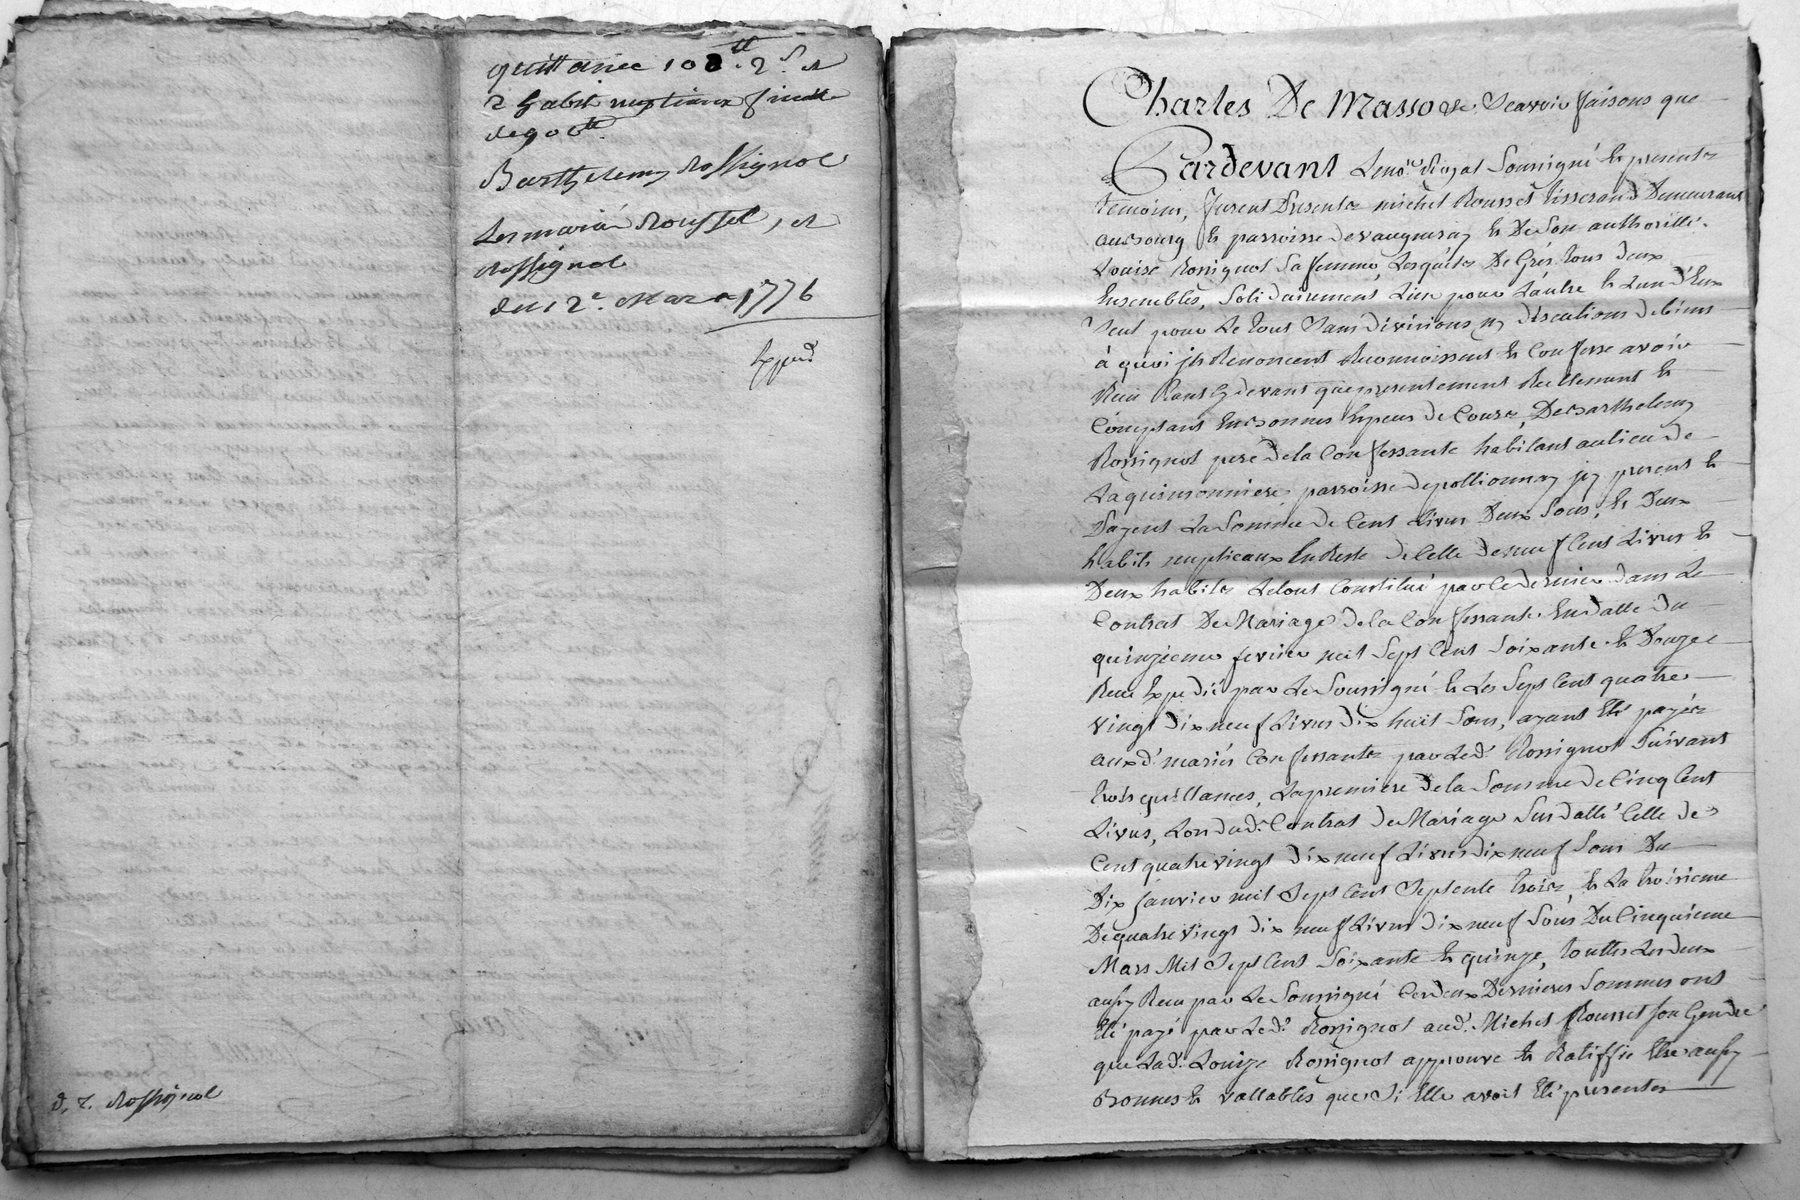 quittance 100ᵗᵗ. 2ˢ. et
2 habit nuptiaux finalle
de 900ᵗᵗ.
Barthelemy Rossignol
Les mariés Rousset, et
Rossignol
du 12ᵉ. Mars 1776
Exped
d. t. Rossignol
Charles De Masso &c. Scavoir faisons que
Pardevant Le noʳᵉ Royal Soussigné Et presents
temoins, furent Presents michel Rousset tisserand Demeurant
au Bourg Et parroisse de vaugneray Et De Son authoritté
Louise Rossignol Sa femme, Lesquels De Grés tous deux
Ensembles, Solidairement L'un pour L'autre Et L'un d'Eux
Seul pour Le tout Sans divisions ny discutions de biens
à quoi jls Renoncent Reconnoissent Et Confesse avoir
Reçu tant Cydevant que presentement Reellement Et
Comptant En Bonnes Especes de Cours, De Barthelemy
Rossignol pere de la Confessante habitant au lieu de
La quinsonniere parroisse de pollionnay jcy present Et
payent La Somme de Cent Livres Deux Sous, Et Deux
habits nuptieaux En Reste de Celle de neuf Cent Livres Et
Deux habits Le tout Constitué par Ce dernier dans Le
Contrat De Mariage de la Confessante En datte du
quinzieme fevrier mil Sept Cent Soixante Et Douze
Reçu Expedié par Le Soussigné Et Les Sept Cent quatre
vingt Dix neuf Livres Dix huit Sous, ayant Eté payés
aux d. mariés Confessants par Led. Rossignol Suivant
trois quittances, La premiere de la Somme de Cinq Cent
Livres, Lors dud. Contrat de Mariage Sus datté Celle de
Cent quatre vingt Dix neuf Livres Dix neuf Sous Du
Dix Janvier mil Sept Cent Septente trois, Et La troisieme
De quatre vingt dix neuf Livres dix neuf Sous Du Cinquieme
Mars Mil Sept Cent Soixante Et quinze, touttes Les deux
aussy Reçu par Le Soussigné Ces deux Dernieres Sommes ont
Eté payé par Led. Rossignol aud. Michel Rousset Son Gendre
que Lad. Louize Rossignol approuve Et Ratiffie Etre aussy
Bonnes Et vallables que Si Elle avoit Eté presente